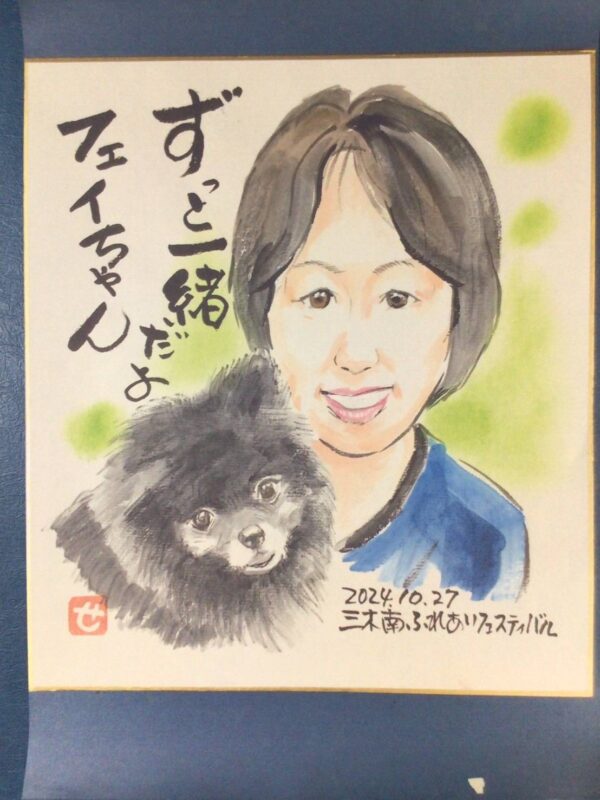 ずっと一緒だよ
フェイちゃん
2024.10.27
三木南ふれあいフェスティバル
せ